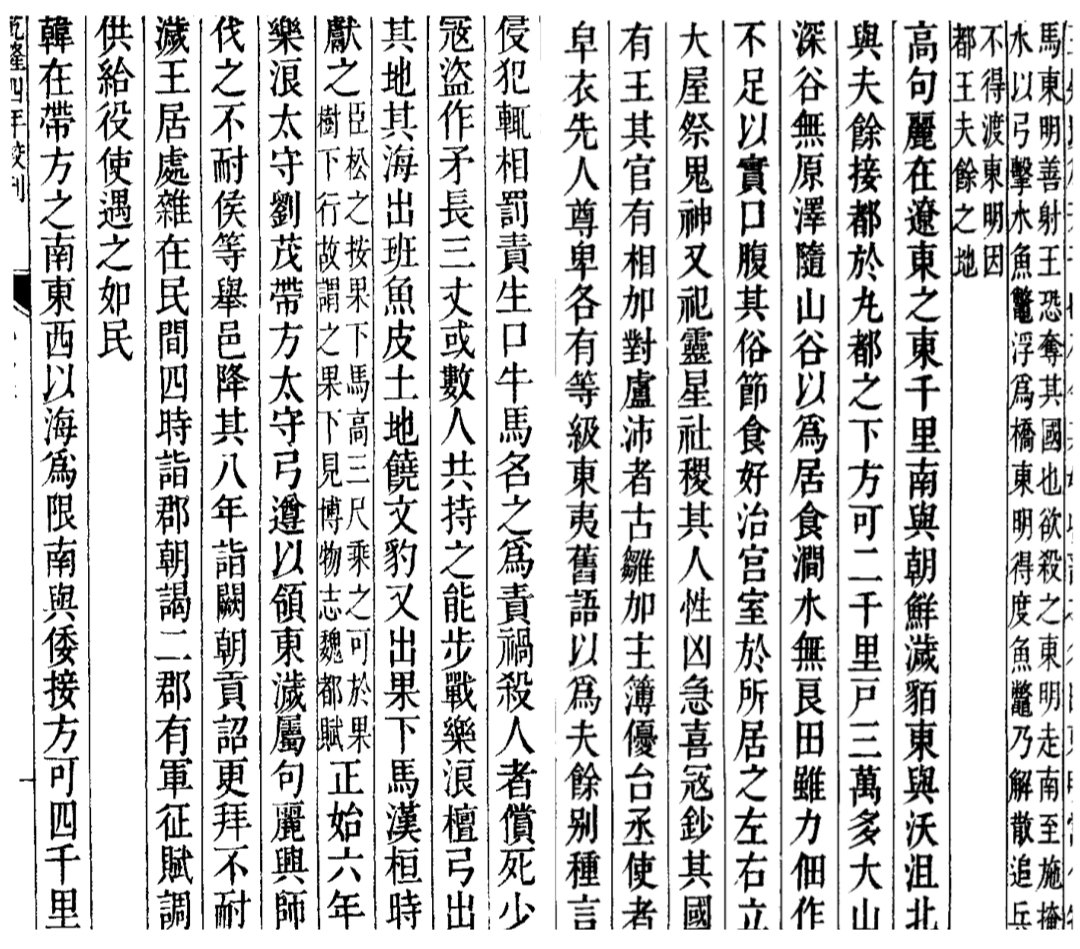 馬東明善射王恐奪其國也欲殺之東明走南至施掩
水以弓擊水魚鼈浮爲橋東明得度魚鼈乃解散追兵
不得渡東明因
都王夫餘之地
高句麗在遼東之東千里南與朝鮮濊貊東與沃沮北
與夫餘接都於丸都之下方可二千里戸三萬多大山
深谷無原澤隨山谷以爲居食澗水無良田雖力佃作
不足以實口腹其俗節食好治宮室於所居之左右立
大屋祭鬼神又祀靈星社稷其人性凶急喜寇鈔其國
有王其官有相加對盧沛者古雛加主簿優台丞使者
皁衣先人尊卑各有等級東夷舊語以爲夫餘别種言
侵犯輒相罰責生口牛馬名之爲責禍殺人者償死少
寇盜作矛長三丈或數人共持之能步戰樂浪檀弓出
其地其海出班魚皮土地饒文豹又出果下馬漢桓時
獻之臣松之按果下馬高三尺乘之可於果樹下行故謂之果下見博物志魏都賦正始六年
樂浪太守劉茂帶方太守弓遵以領東濊屬句麗興師
伐之不耐侯等舉邑降其八年詣闕朝貢詔更拜不耐
濊王居處雜在民間四時詣郡朝謁二郡有軍征賦調
供給役使遇之如民
韓在帶方之南東西以海爲限南與倭接方可四千里
乾隆四年校刊